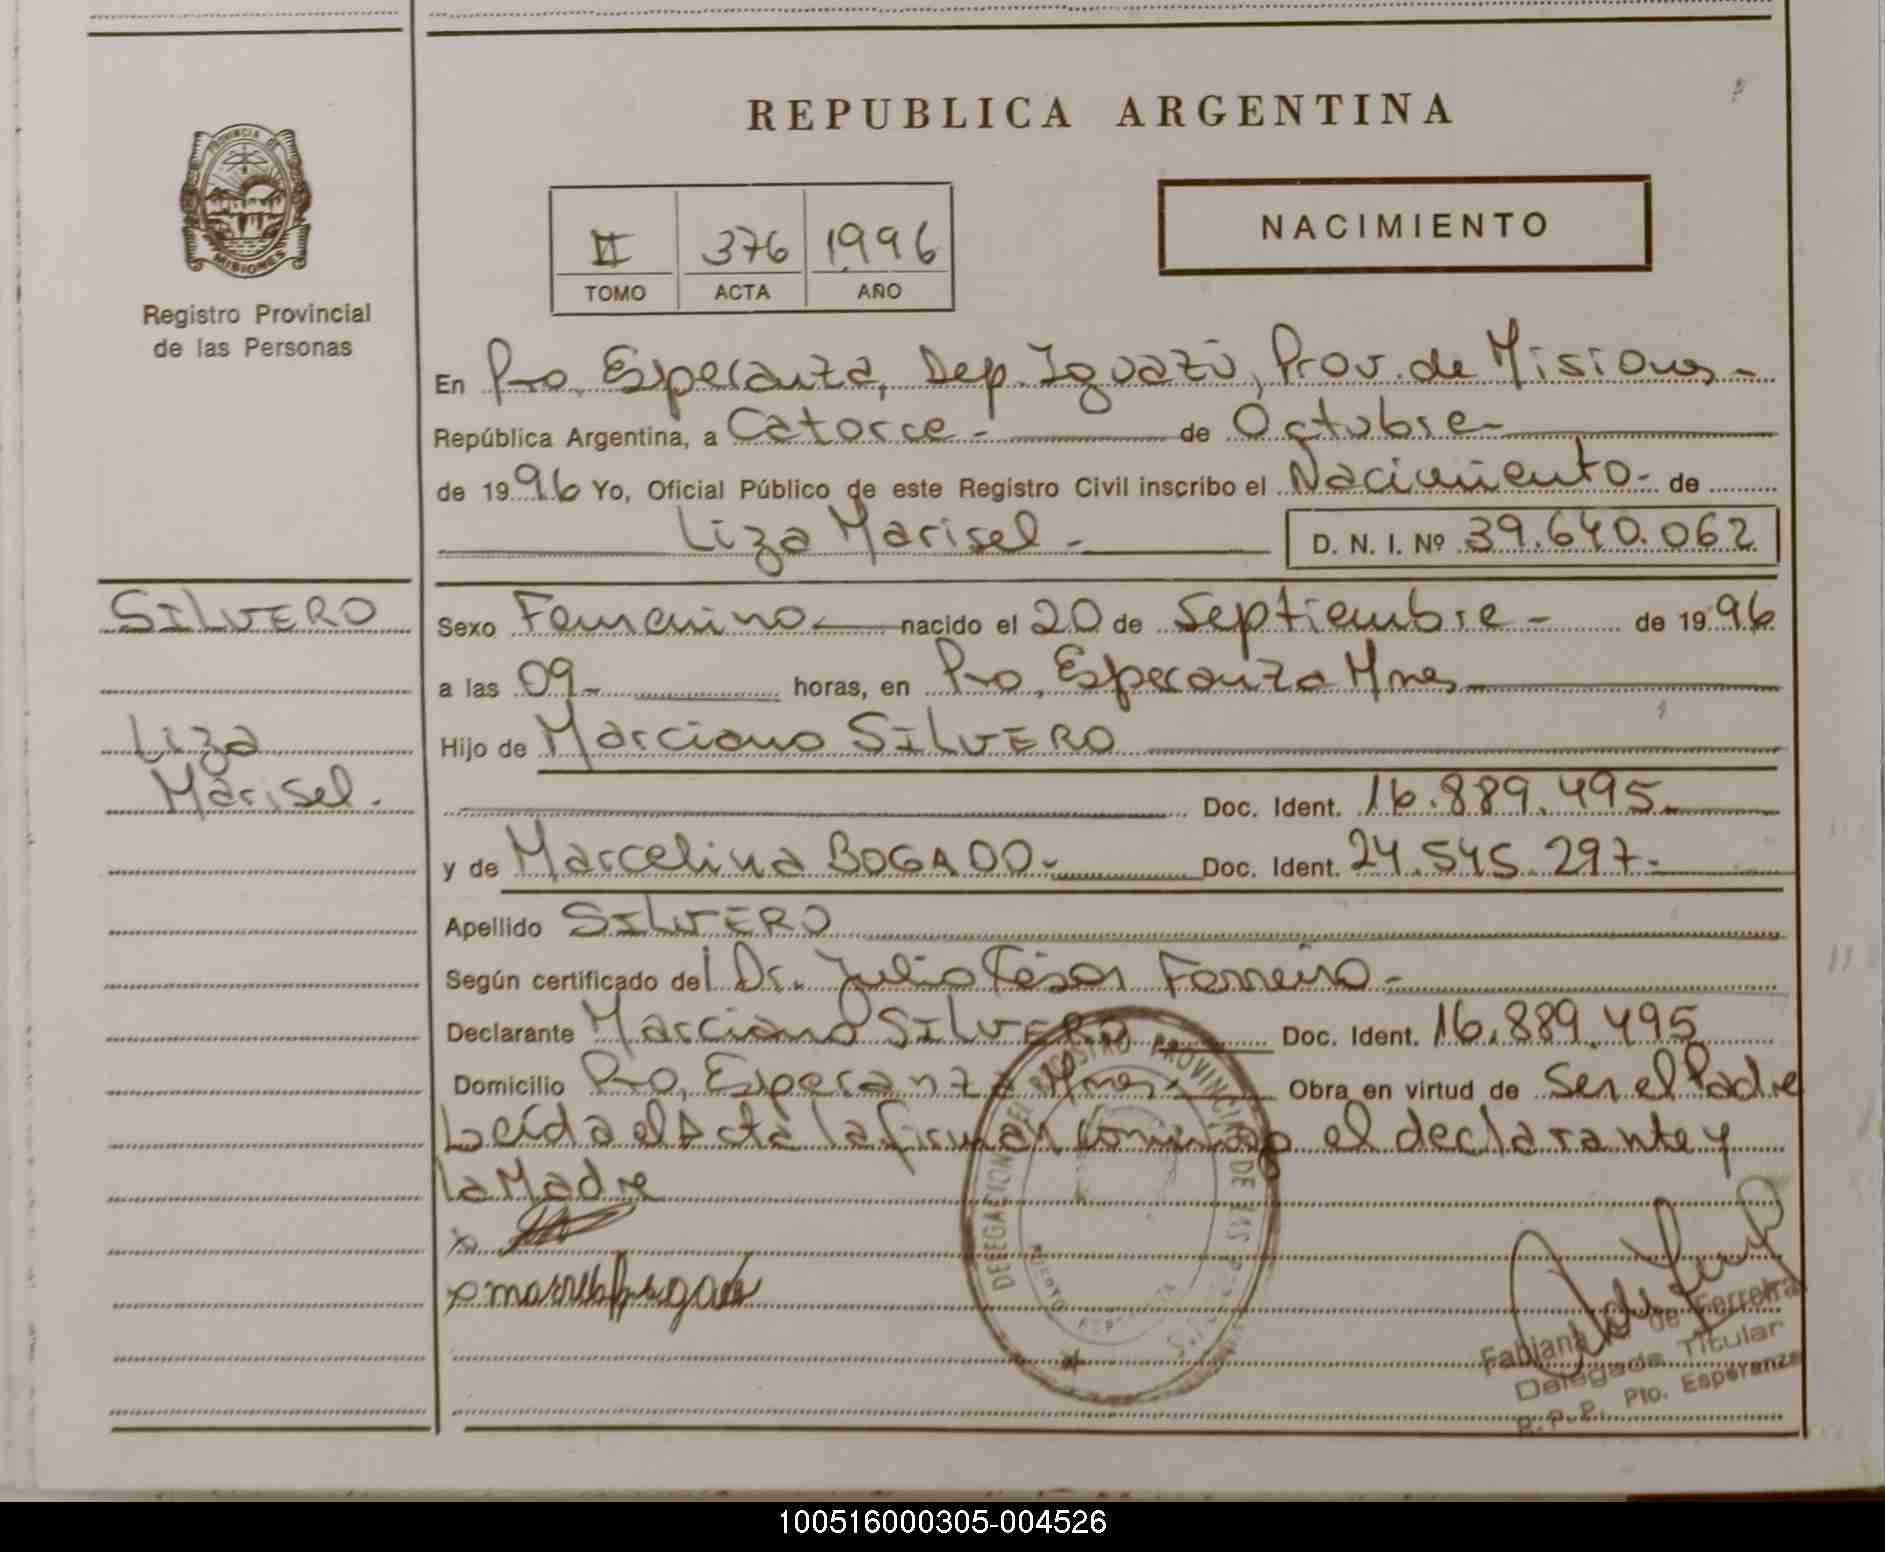 REPUBLICA ARGENTINA
PROVINCIA DE
MISIONES
Registro Provincial
de las Personas
II 376 1996
TOMO ACTA AÑO
NACIMIENTO
En Pto. Esperanza, Dep. Iguazú, Prov. de Misiones -
República Argentina, a Catorce - de Octubre -
de 1996 Yo, Oficial Público de este Registro Civil inscribo el Nacimiento - de
Liza Marisel -
D. N. I. Nº 39.640.062
SILVERO
Liza
Marisel.
Sexo Femenino nacido el 20 de Septiembre - de 1996
a las 09 - horas, en Pto. Esperanza Mnes
Hijo de Marciano SILVERO
Doc. Ident. 16.889.495 -
y de Marcelina BOGADO - Doc. Ident. 24.545.297 -
Apellido SILVERO
Según certificado del Dr. Julio César Ferreira -
Declarante Marciano SILVERO Doc. Ident. 16.889.495
Domicilio Pto. Esperanza Mnes - Obra en virtud de Ser el Padre
Leída el Acta la firman Conmigo el declarante y
la Madre
DELEGACION DEL REGISTRO PROVINCIAL DE LAS
Fabiana de Ferreira
Delegada Titular
R.P.P. Pto. Esperanza
100516000305-004526